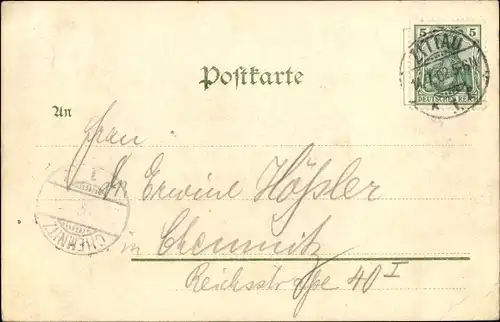 5 5
ZITTAU
DEUTSCHES REICH
Postkarte
An
Frau
Erwine Hößler
in Chemnitz
Reichsstraße 40 I
CHEMNITZ